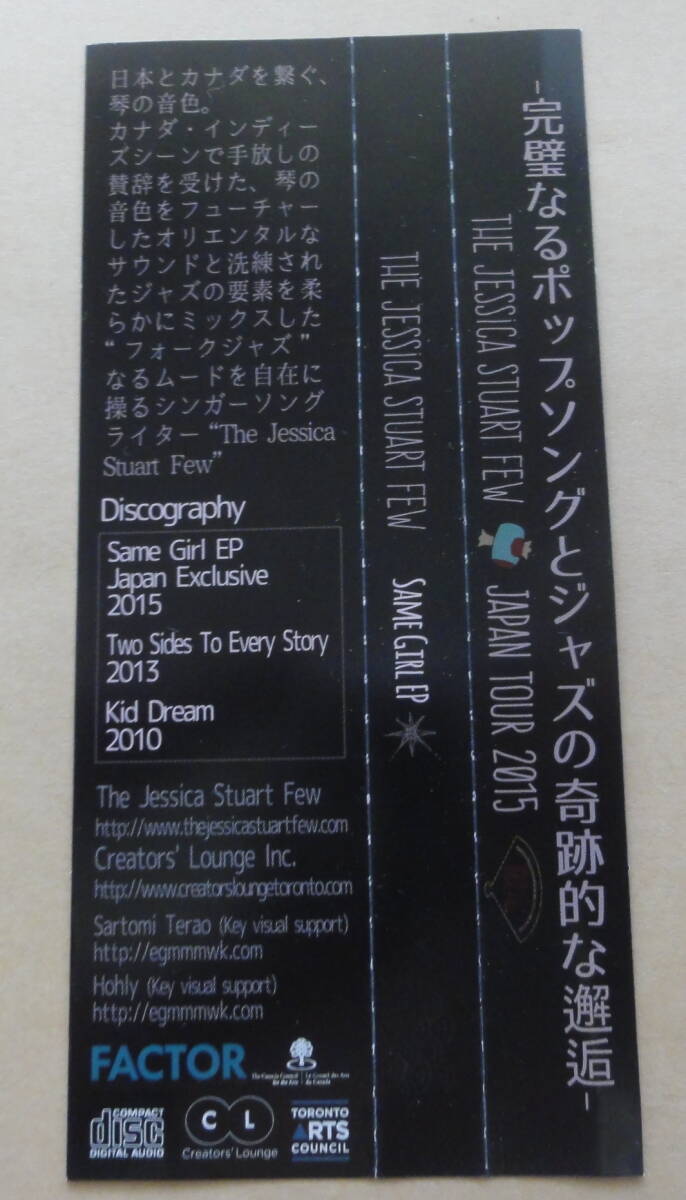 -完璧なるポップソングとジャズの奇跡的な邂逅-
THE JESSiCA STUART FEW JAPAN TOUR 2015
THE JESSiCA STUART FEW SAME GIRL EP
日本とカナダを繋ぐ、
琴の音色。
カナダ・インディー
ズシーンで手放しの
賛辞を受けた、琴の
音色をフューチャー
したオリエンタルな
サウンドと洗練され
たジャズの要素を柔
らかにミックスした
“フォークジャズ”
なるムードを自在に
操るシンガーソング
ライター“The Jessica
Stuart Few”
Discography
Same Girl EP
Japan Exclusive
2015
Two Sides To Every Story
2013
Kid Dream
2010
The Jessica Stuart Few
http://www.thejessicastuartfew.com
Creators' Lounge Inc.
http://www.creatorsloungetoronto.com
Sartomi Terao (Key visual support)
http://egmmmwk.com
Hohly (Key visual support)
http://egmmmwk.com
FACTOR
The Canada Council
for the Arts
Le Conseil des Arts
du Canada
COMPACT
disc
DIGITAL AUDIO
C L
Creators' Lounge
TORONTO
ARTS
COUNCIL